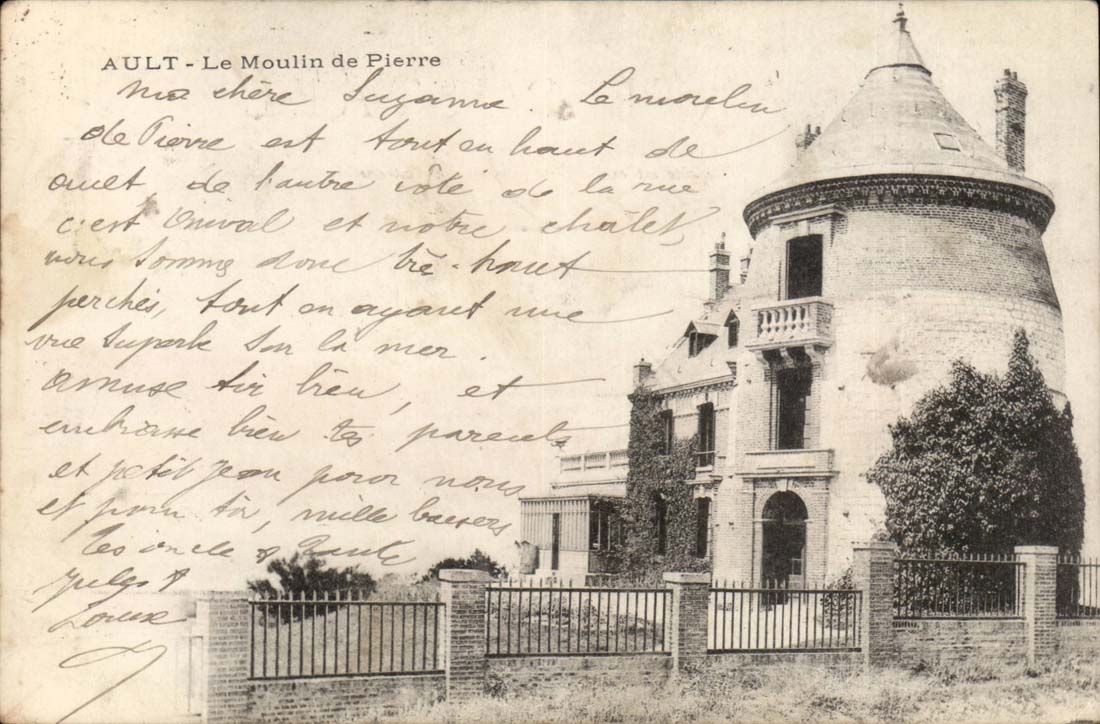 AULT - Le Moulin de Pierre
Ma chère Suzanne. Le moulin
de Pierre est tout en haut de
ault, de l'autre côté de la rue
c'est Onival et notre châlet,
nous somme donc trè-haut
perchés, tout en ayant une
vue superbe sur la mer.
Amuse toi bien, et
embrasse bien tes parents
et petit Jean pour nous
et pour toi, mille baisers
tes oncle & tante
Jules &